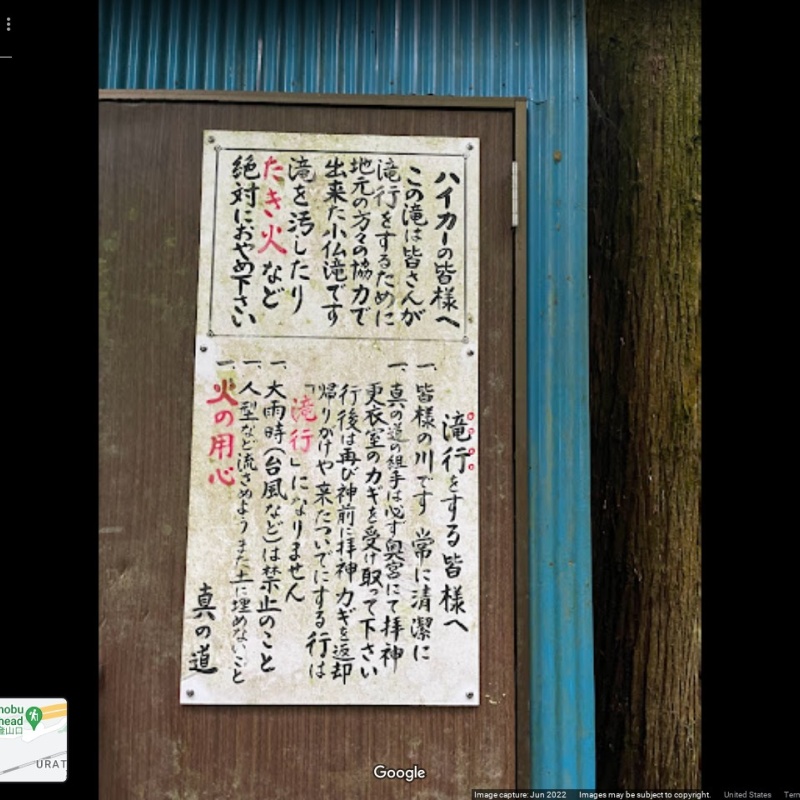 ハイカーの皆様へ
この滝は皆さんが
滝行をするために
地元の方々の協力で
出来た小仏滝です
滝を汚したり
たき火など
絶対におやめ下さい
滝行をする皆様へ
一、皆様の川です 常に清潔に
一、真の道の組手は必ず奥宮にて拝神
更衣室のカギを受け取って下さい
行後は再び神前に拝神 カギを返却
帰りがけや来たついでにする行は
「滝行」になりません
一、大雨時(台風など)は禁止のこと
一、人型など流さぬよう また土に埋めないこと
一、火の用心
真の道
nobu
head
登山口
URAT
Google
Image capture: Jun 2022
Images may be subject to copyright.
United States